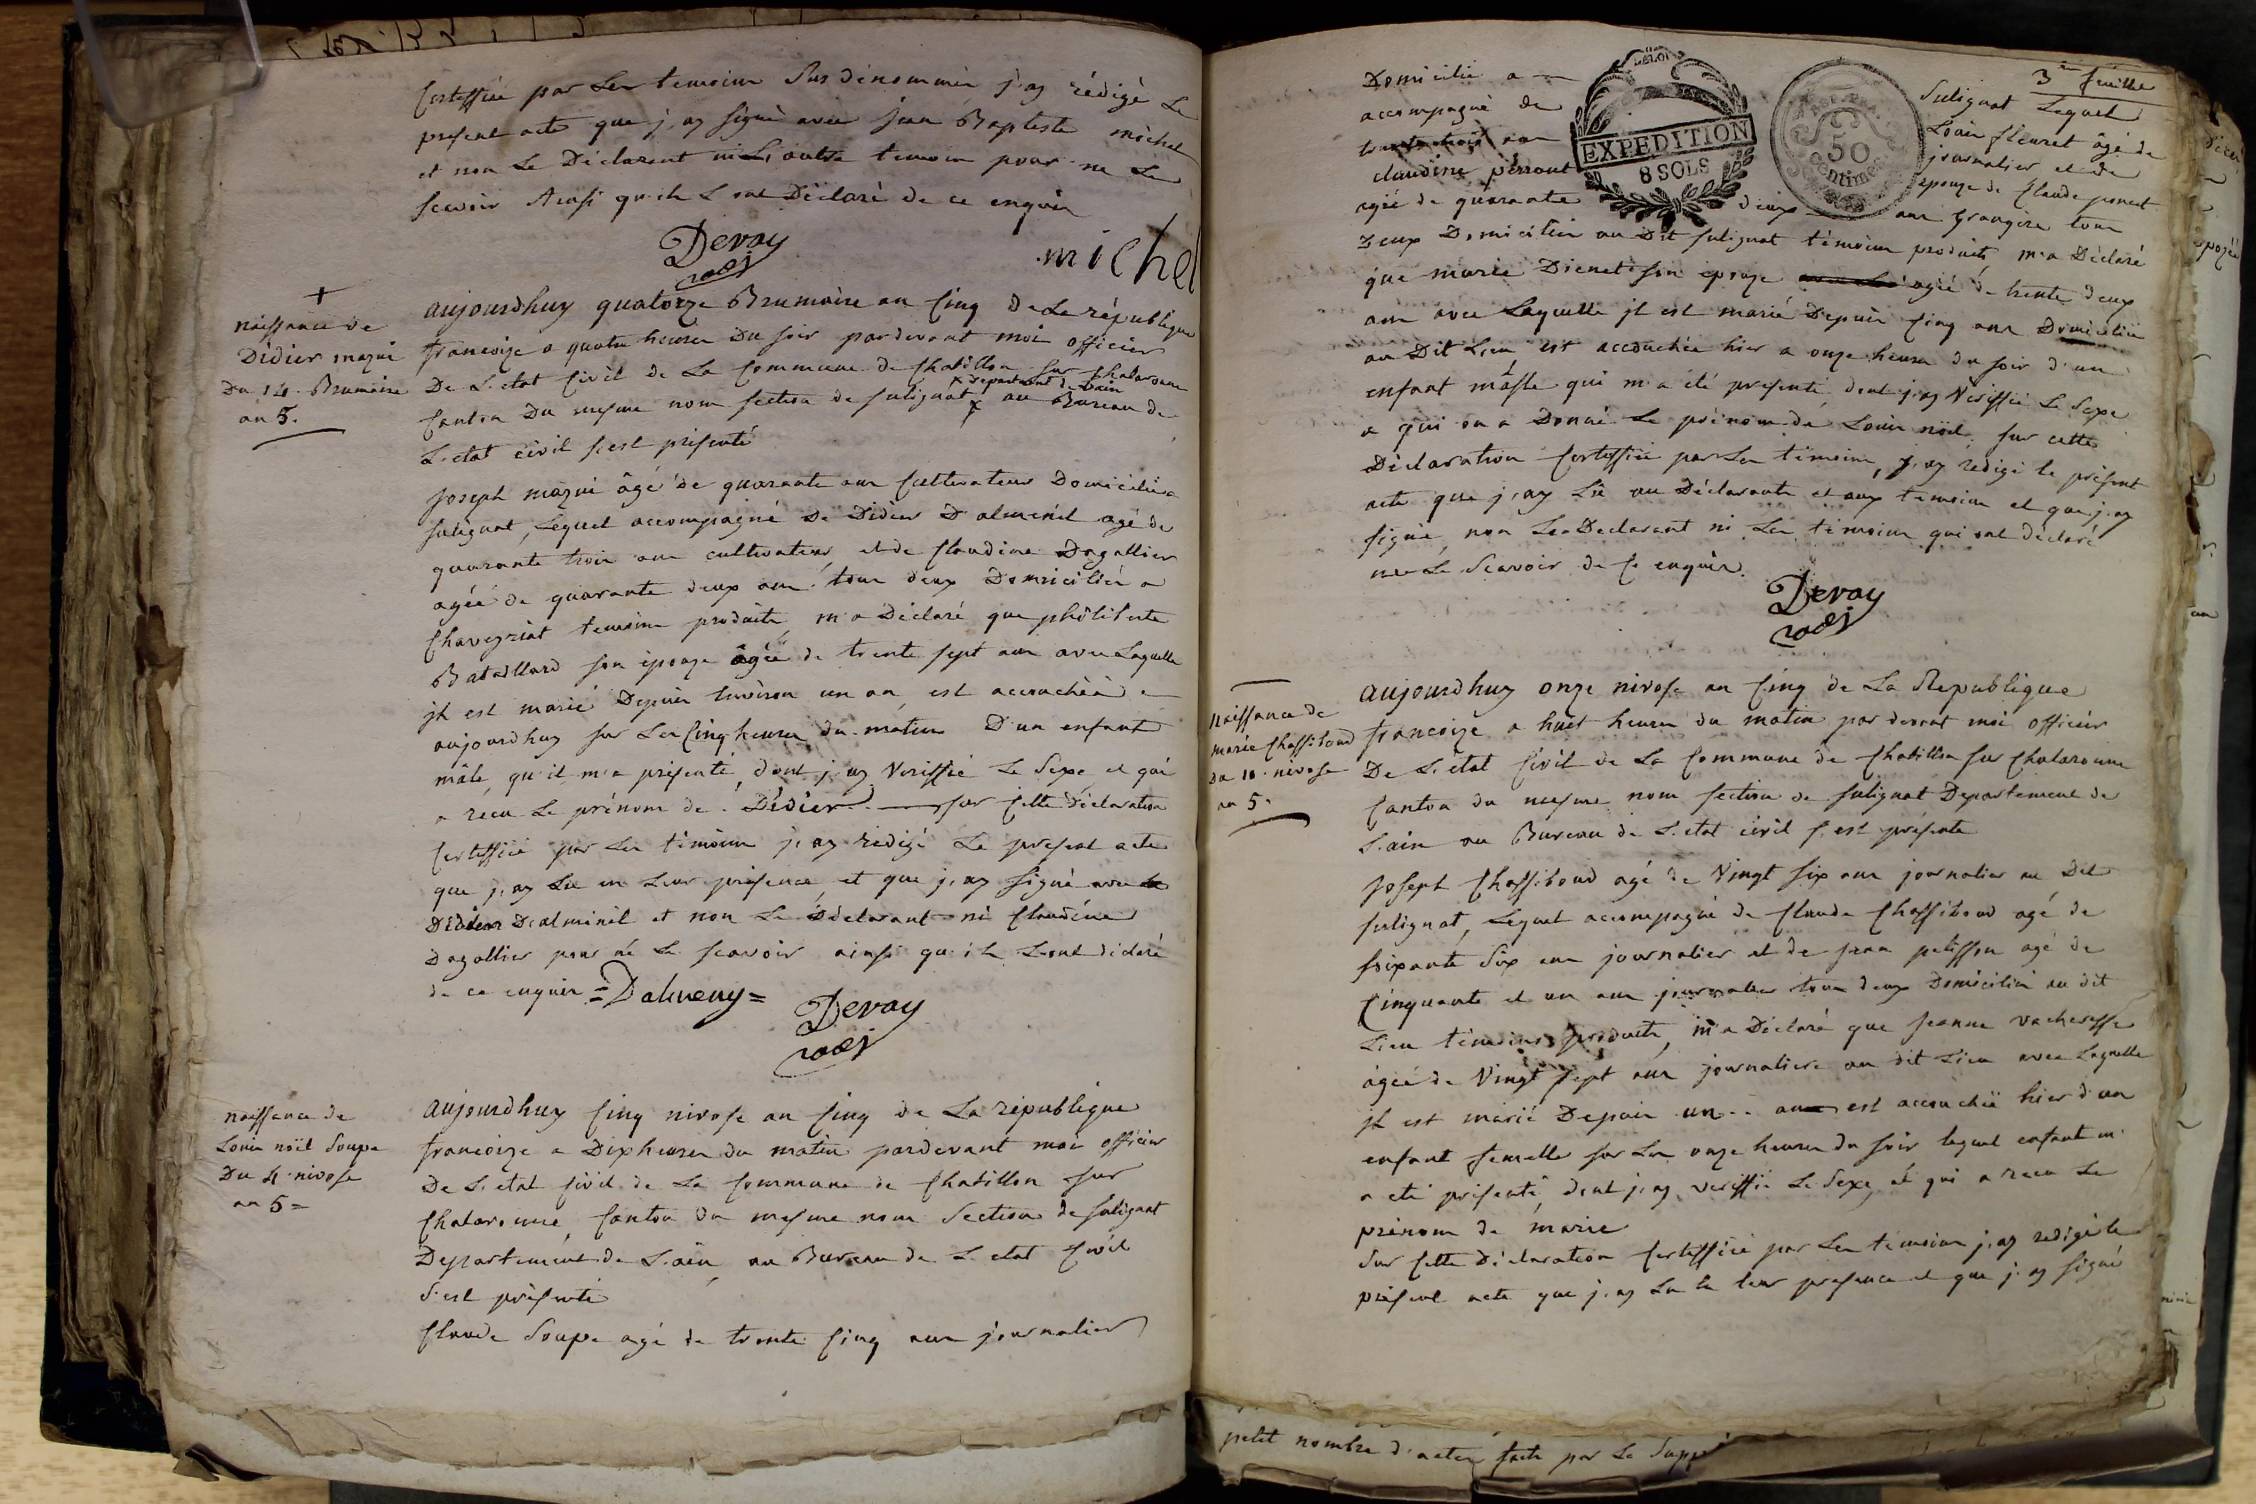 Certiffiée par Les temoins Sus dénommés j'ay rédigé Le
present acte que j'ay signé avec jean Baptiste michel
et non Le Déclarent ni L'autre temoin pour ne Le
scavoir Ainsi qu'ils L'ont Déclaré de ce enquis
Devay
michel
+
naissance de
Didier mazui
Du 14 Brumaire
an 5.
aujourdhuy quatorze Brumaire an Cinq De La république
francoize a quatre heures Du soir pardevant moi officier
De L'etat Civil de La Commune de Chatillon sur Chalaronne
x departement de Lain
Canton Du mesme nom section de suligniat x au Bureau de
L'etat civil s'est présenté
joseph mazui âgé de quarante ans Cultivateur Domicilié a
sulignat, Lequel accompagné De Didier D'almenil agé de
quarante trois ans cultivateur, et de Claudine Dagallier
agée de quarante deux ans tous deux Domiciliés a
Chaveyriat temoins produits, m'a Déclaré que philiberte
Bataillard son épouze âgée de trente sept ans avec Laquelle
jl est marié Depuis environ un an, est accouchée
aujourdhuy sur Les Cinq heures du matin D'un enfant
mâle, qu'il m'a présenté, dont j'ay Veriffié Le Sexe, et qui
a recu Le prénom de Didier sur Cette Déclaration
Certiffiée par Les témoins j'ay rédigé Le present acte
que j'ay Lu en Leur présence, et que j'ay signé avec
Didier Dalminil et non Le Déclarant ni Claudine
Dagallier pour ne Le scavoir ainsi qu'ils L'ont déclaré
de ce enquis =Dalmeny=
Devay
naissance de
Louis noël Soupe
Du 4 nivose
an 5=
aujourdhuy Cinq nivose an Cinq de La république
francoize a Dix heures du matin pardevant moi officier
De L'etat Civil de La Commune de Chatillon sur
Chalaronne, Canton du mesme nom Section de sulignat
Departement de L'ain, au Bureau de L'etat Civil
S'est présenté
Claude Soupe agé de trente Cinq ans journalier
3me feuille
Domicilié a Sulignat Lequel
accompagné de Louis fleuret âgé de
trente trois ans journalier et de
claudine perrout épouze de Claude poncet
agée de quarante deux ans Grangère tous
deux Domiciliés au Dit sulignat témoins produits, m'a Déclaré
EXPEDITION
8 SOLS
50
Centimes
que marie Dienet son épouze agée de trente deux
ans avec Laquelle jl est marié Depuis Cinq ans Domiciliée
au Dit Lieu, est accouchée hier a onze heures du soir d'un
enfant mâsle qui m'a été presenté, dont j'ay Veriffié Le Sexe
a qui on a Donné Le prénom de Louis noël, sur cette
Déclaration Certiffiée par Les témoins, j'ay redigé le présent
acte que j'ay Lu au Déclarant et aux temoins et que j'ay
signé, non Le Declarant ni Les témoins qui ont déclaré
ne Le Scavoir de Ce enquis.
Devay
naissance de
marie Chassiboud
du 10 nivose
an 5.
aujourdhuy onze nivose an Cinq de La Republique
francoize a huit heures du matin par devant moi officier
De L'état Civil de La Commune de Chatillon sur Chalaronne
Canton du mesme nom section de sulignat Departement de
L'ain au Bureau de L'etat civil s'est présenté
joseph Chassiboud agé de Vingt six ans journalier au Dit
sulignat, Lequel accompagné de Claude Chassiboud agé de
soixante Six ans journalier et de jean pelisson agé de
Cinquante et un ans journalier tous deux Domiciliés au dit
Lieu témoins produits, m'a Déclaré que jeanne vacheresse
âgée de Vingt sept ans journaliere au dit Lieu avec Laquelle
jl est marié Depuis un an est accouchée hier d'un
enfant femelle sur Les onze heures du soir lequel enfant m'
a eté présenté, dont j'ay veriffié Le Sexe, et qui a recu Le
prénom de marie
Sur Cette Déclaration Certiffiée par Les temoins j'ay redigé le
présent acte que j'ay Lu en leur presence et que j'ay signé
petit nombre d'actes faits par Le